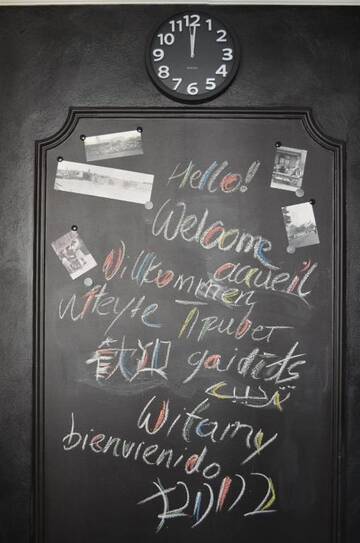 12 1 2 3 4 5 6 7 8 9 10 11
Hello!
Welcome
accueil
Willkommen
Witeyte Привет
歓迎 gaidīts
ترحيب
Witamy
bienvenido